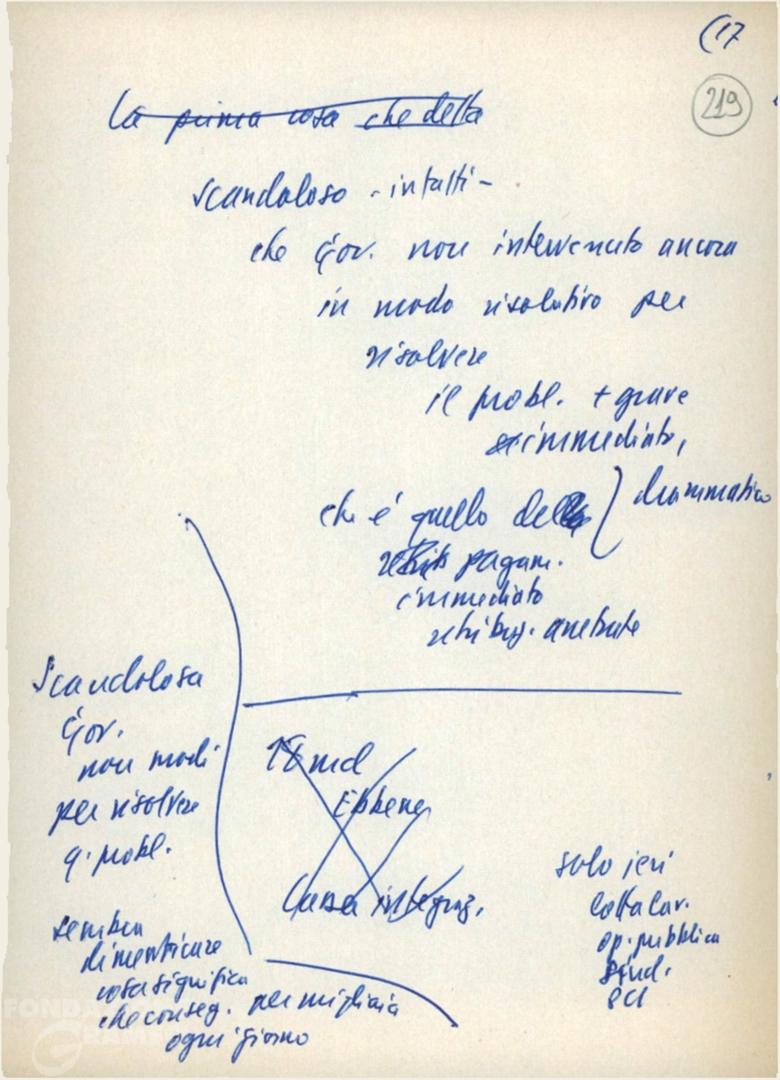 (17
219
La prima cosa che detta
Scandaloso - infatti -
che Gov. non intervenuto ancora
in modo risolutivo per
risolvere
il probl. + grave
immediato,
che è quello del
drammatico
pagam.
immediato
retribuz. arretrate
Scandalosa
Gov.
non modi
per risolvere
q. probl.
sembra
dimenticare
cosa significa
che conseg. per migliaia
ogni giorno
18 md
Ebbene,
Cassa integraz.
solo ieri
lotta lav.
op. pubblica
sind.
PCI
FONDAZIONE
GRAMSCI